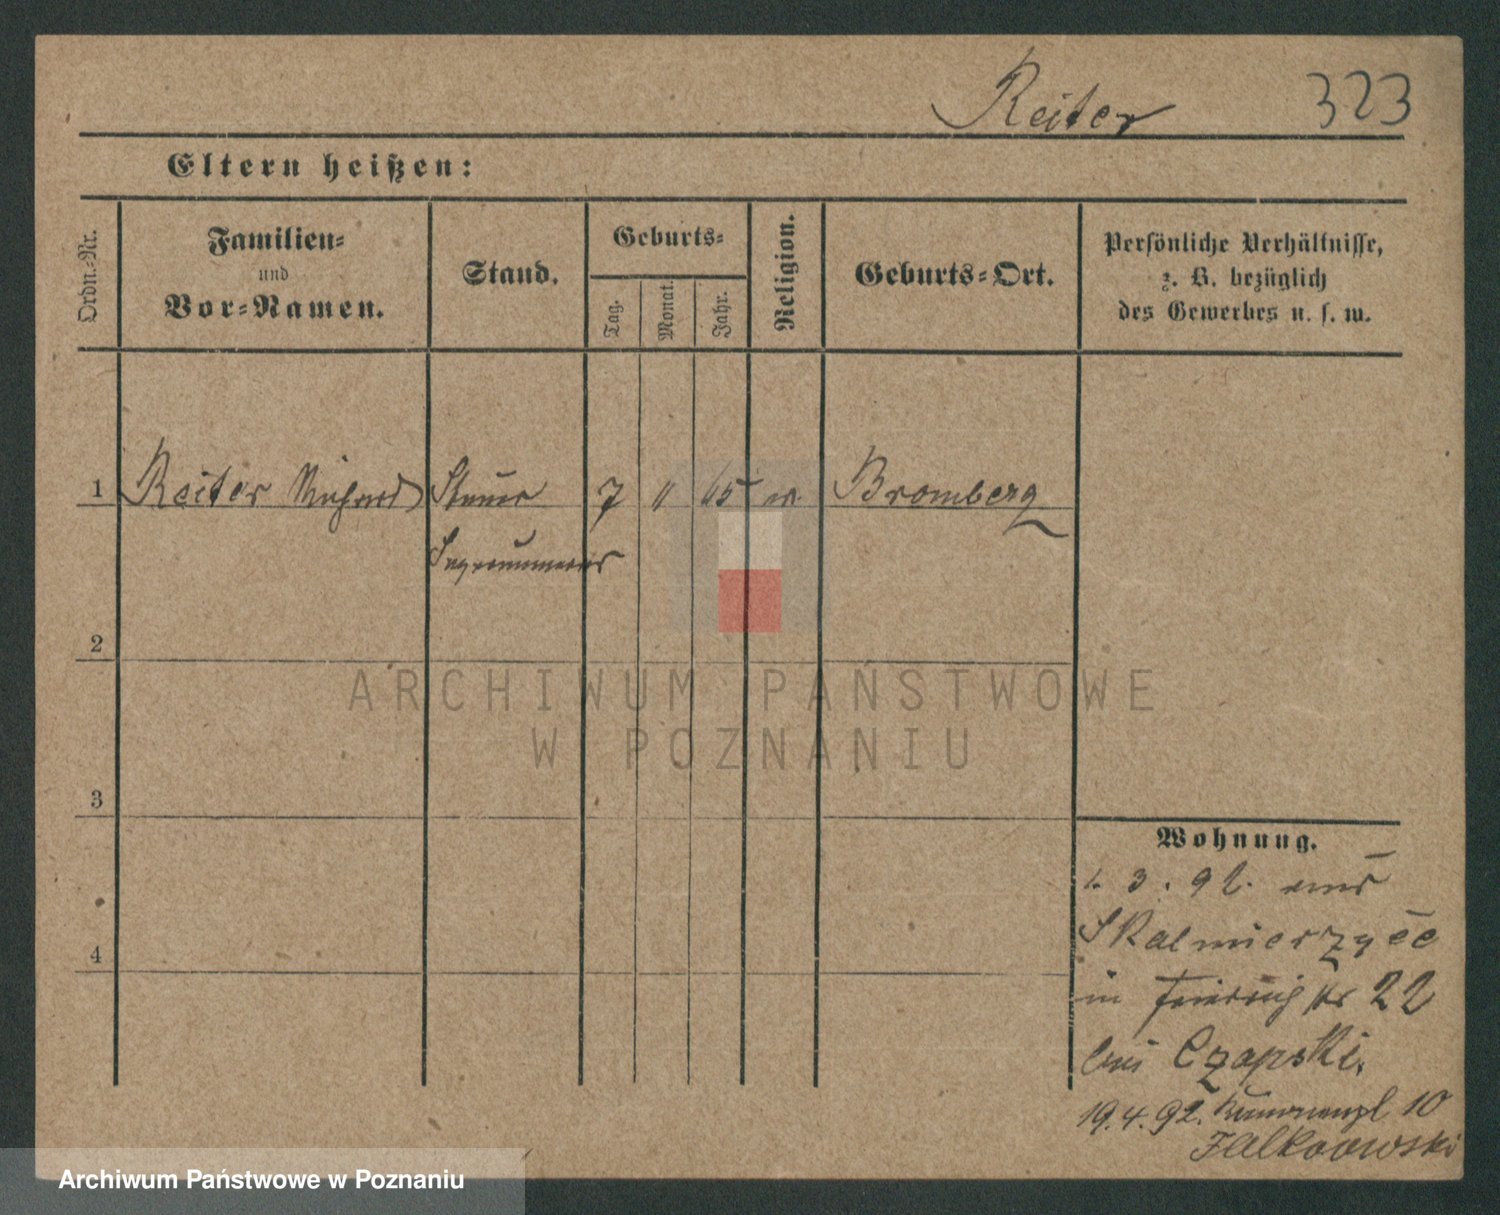 Reiter 323
Eltern heißen:
Ordn.-Nr.
Familien-
und
Vor-Namen.
Stand.
Geburts-
Tag.
Monat.
Jahr.
Religion.
Geburts-Ort.
Persönliche Verhältnisse,
z. B. bezüglich
des Gewerbes u. s. w.
1 Reiter Richard Steuer 7 11 65 Bromberg
Supernumerar
2
ARCHIWUM PAŃSTWOWE
W POZNANIU
3
Wohnung.
1. 3. 92. aus
4
Skalmierzyce
in Friedrich str 22
bei Czapski.
19.4.92. 10
Falkowski
Archiwum Państwowe w Poznaniu